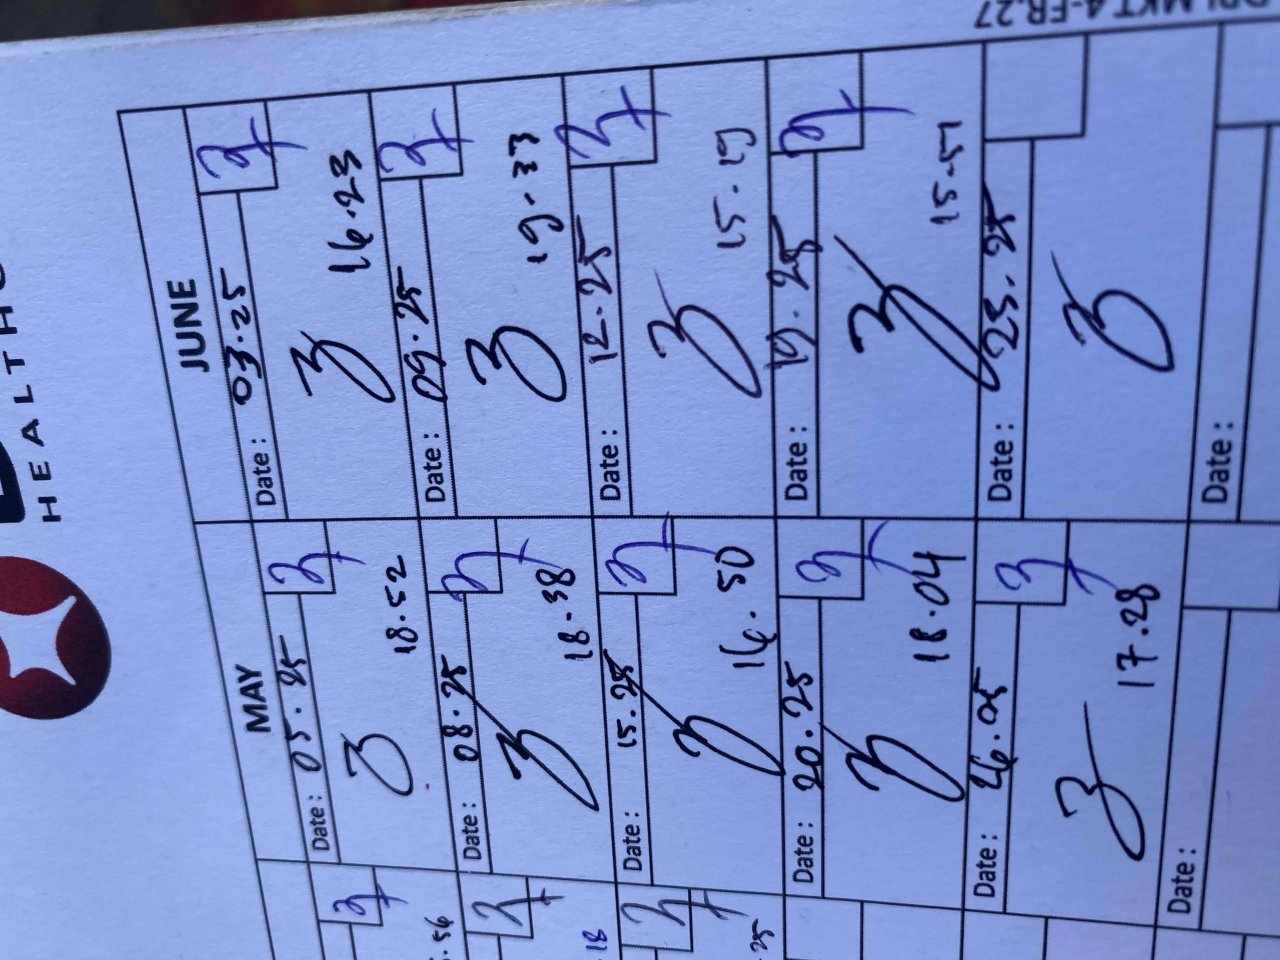 HEALTHC
MKT 4-FR.27
MAY
Date: 05.25
18.52
Date: 08.25
18.38
Date: 15.25
16.50
Date: 20.25
18.04
Date: 26.05
17.28
Date:
JUNE
Date: 03.25
16.23
Date: 09.25
19.33
Date: 12.25
15.19
Date: 19.25
15.51
Date: 25.25
Date:
.56
.18
.25